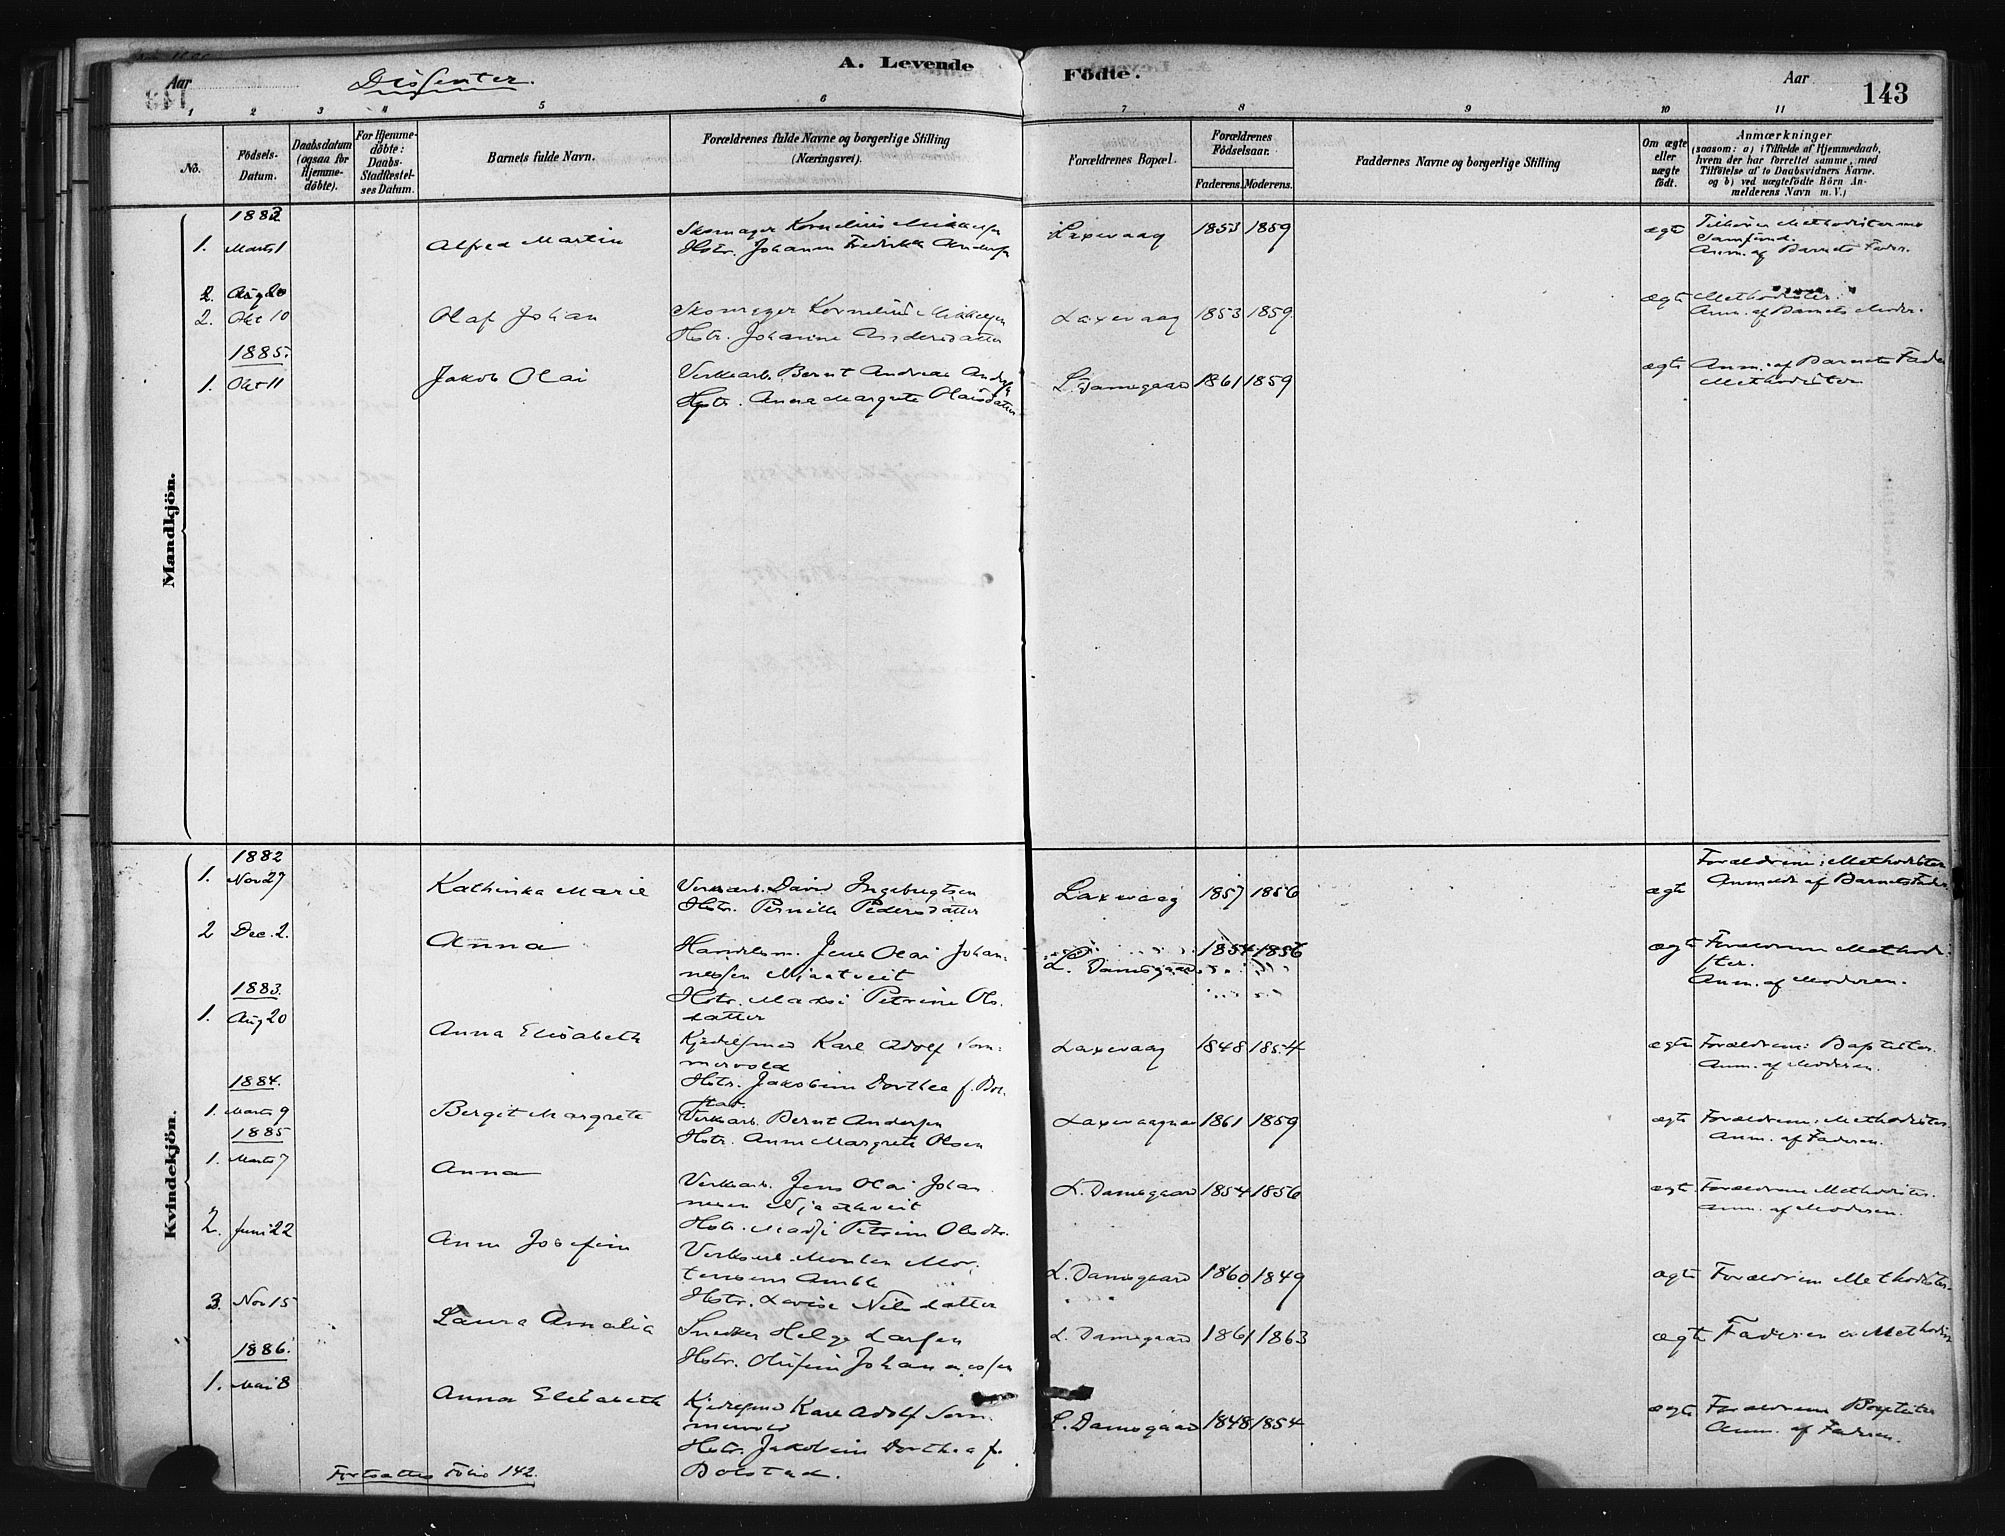 A. Levende Födte.
Aar
Dissenter.
Aar
143
1 2 3 4 5 6 7 8 9 10 11
No.
Födsels-Datum.
Daabsdatum (ogsaa for Hjemme-döbte).
For Hjemme-döbte: Daabs-Stadfæstel-ses Datum.
Barnets fulde Navn.
Forældrenes fulde Navne og borgerlige Stilling (Næringsvei).
Forældrenes Bopæl.
Forældrenes Födselsaar.
Faderens. Moderens.
Faddernes Navne og borgerlige Stilling
Om ægte eller uægte födt.
Anmærkninger
(saasom: a) i Tilfælde af Hjemmedaab, hvem der har forrettet samme, med Tilföielse af to Daabsvidners Navne. og b) ved uægtefödte Börn An-melderens Navn m. V.)
Mandkjön.
1. Marts 1 Alfred Martin
Skomager Kornelius Mikkelsen
Hstr. Johanne Fredrikke Andersen
Laxevaag 1853 1859 ægte
Tilhører Methodisternes
Samfund.
Anm. af Barnets Fader.
2. Aug 20
2. Okt 10 Olaf Johan
Skomager Kornelius Mikkelsen
Hstr. Johanne Andersdatter
Laxevaag 1853 1859. ægte
Methodister.
Anm. af Barnets Moder.
1885.
1. Okt 11 Jakob Olai
Verksarb. Bernt Andreas Andersen
Hstr. Anna Margrete Olaisdatter
L. Damsgaard 1861 1859 ægte
Anm. af Barnets Fader
Methodister
Kvindekjön.
1882
1. Nov 27 Kathinka Marie
Verksarb. David Ingebrigtsen
Hstr. Pernille Pedersdatter
Laxevaag 1857 1856 ægte
Forældrene: Methodister
Anmeldt af Barnets Fader
2 Dec. 2. Anna
Handelsm. Jens Olai Johan-
nessen Mjaatveit
Hstr. Madsi Petrine Ols-
datter
L. Damsgaard 1854 1856 ægte
Forældrene Methodi-
ster.
Anm. af Moderen.
1883.
1. Aug 20 Anna Elisabeth
Kjedelsmed Karl Adolf Som-
mervold
Hstr. Jakobine Dorthea f. Bol-
stad.
Laxevaag 1848 1854 ægte
Forældrene: Baptister.
Anm. af Moderen.
1884.
1. Marts 9 Bergit Margrete
Verksarb. Bernt Andersen
Hstr. Anne Margrete Olsen
Laxevaagnæs 1861 1859 ægte
Forældrene: Methodister
Anm. af Faderen.
1885
1. Marts 7 Anna
Verksarb. Jens Olai Johan
nesen
Hstr. Madsi Petrine Olsdtr.
L. Damsgaard 1854 1856 ægte
Forældrene Methodister.
Anm. af Moderen.
2. Juni 22 Anne Josefine
Verksarb. Monten Mor-
tensen Amble
Hstr. Lovise Nilsdatter
L. Damsgaard 1860 1849 ægte
Forældrene Methodister.
3. Nov 15 Laura Amalia
Snedker Helge Larsen
Hstr. Olufine Johannessen
L. Damsgaard 1861 1863 ægte
Faderen er Methodist
1886.
1. Mai 8 Anna Elisabeth
Kjedelsmed Karl Adolf Som
mervold
Hstr. Jakobine Dorthea f.
Bolstad.
L. Damsgaard 1848 1854 ægte
Forældrene Baptister
Anm. af Faderen.
Fortsættes Folio 142.